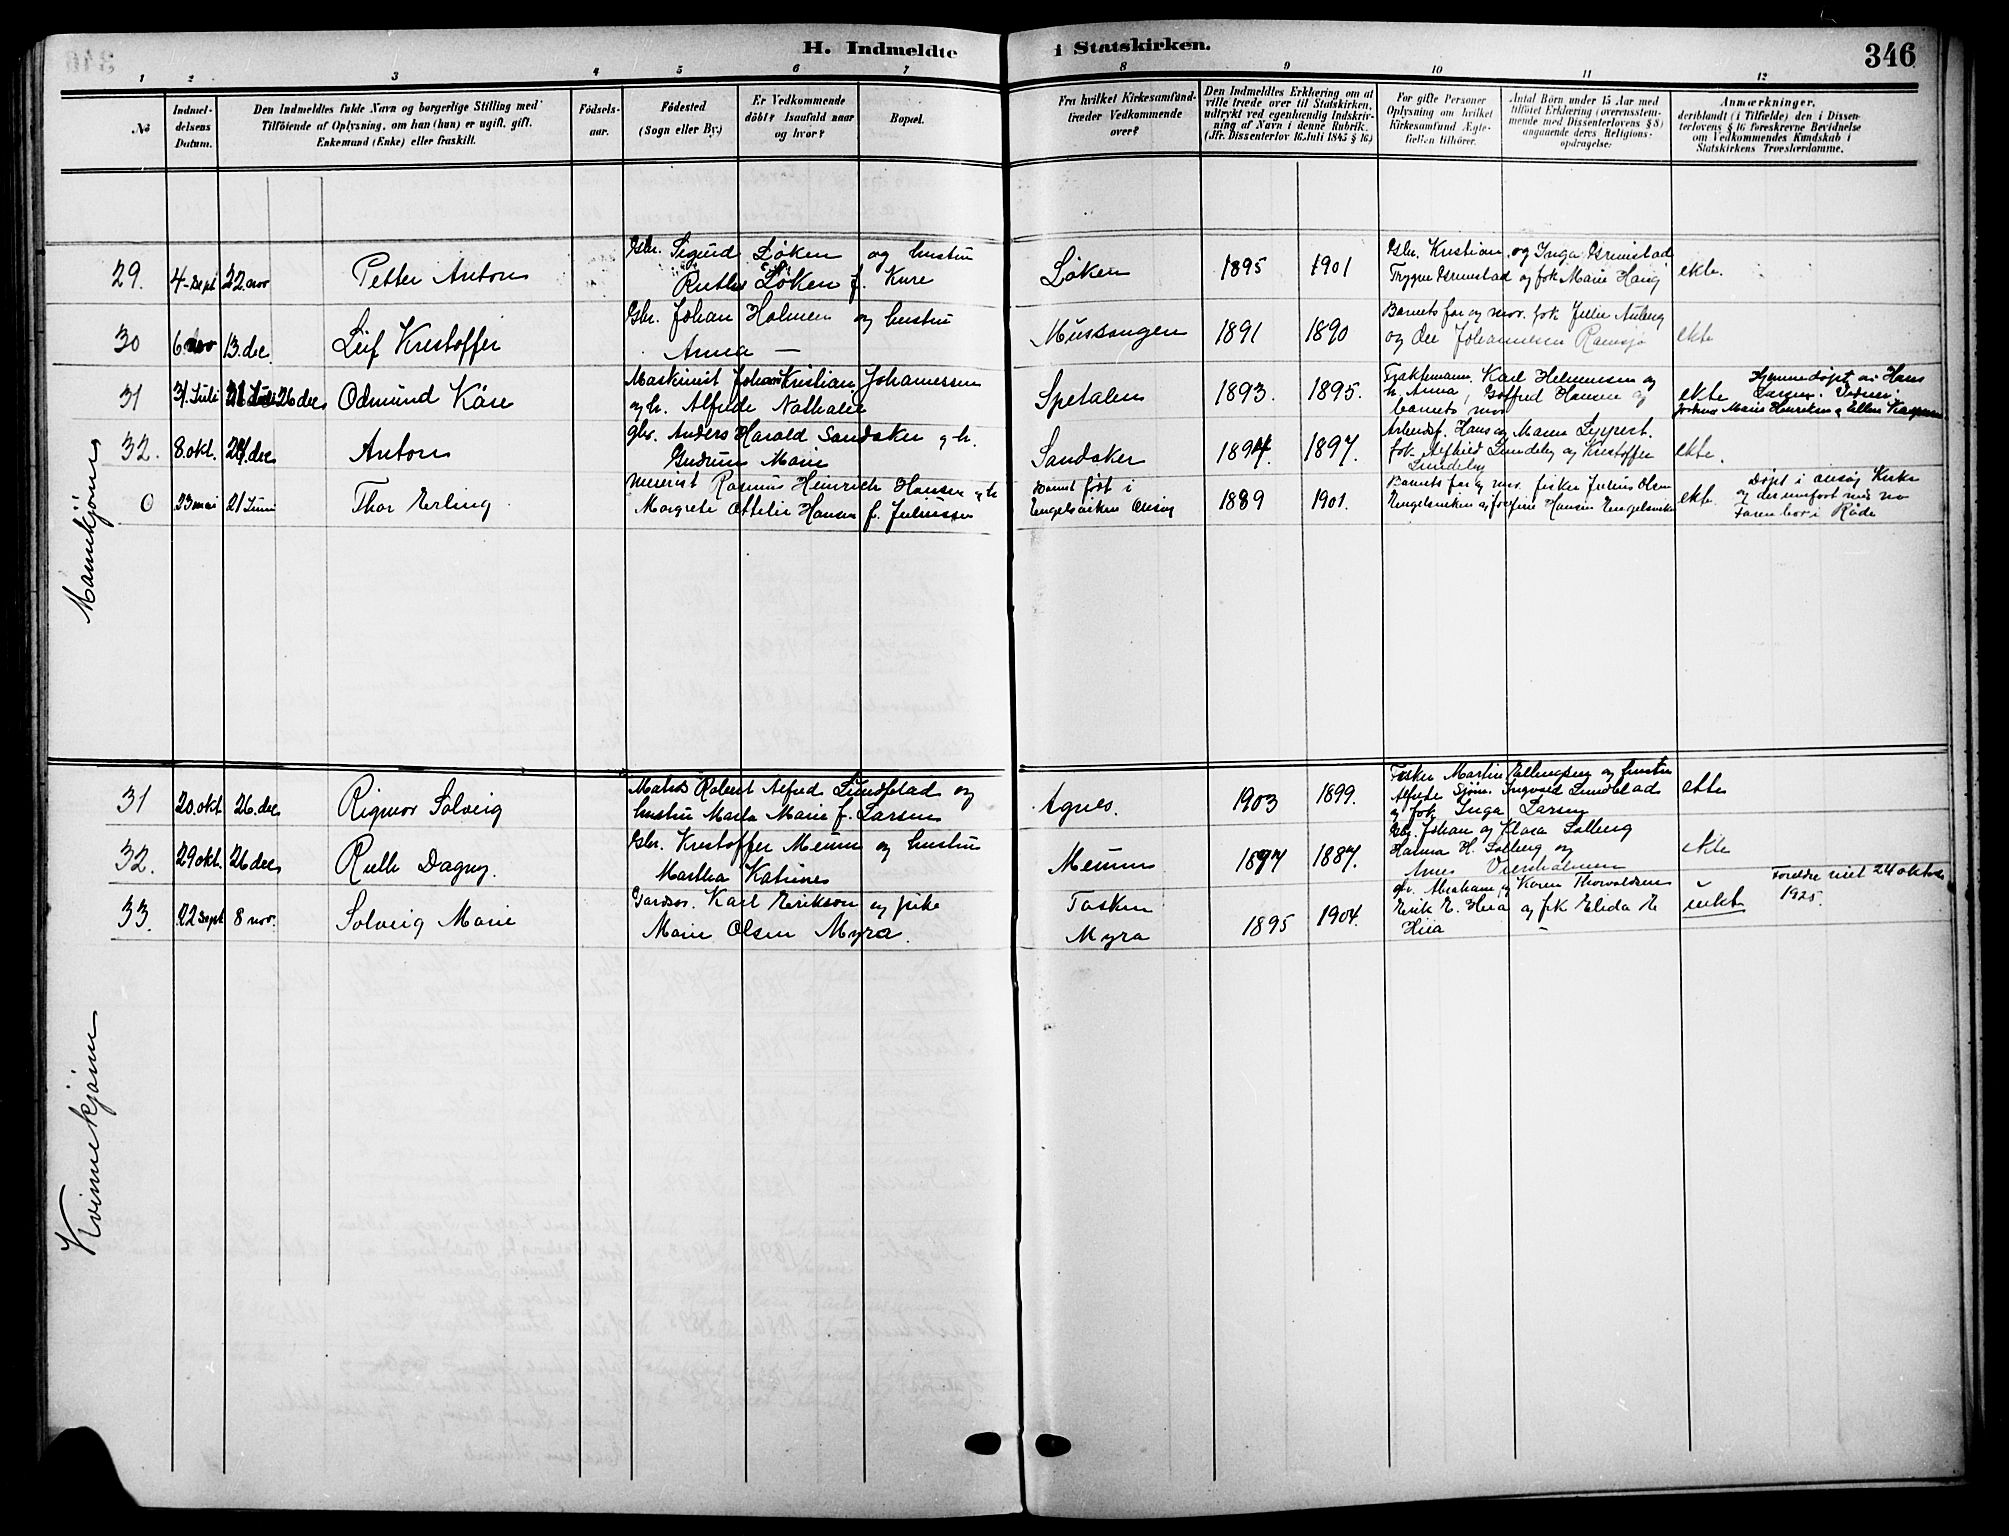 H. Indmeldte i Statskirken.
346
1 2 3 4 5 6 7 8 9 10 11 12
No
Indmel-
delsens
Datum.
Den Indmeldtes fulde Navn og borgerlige Stilling med
Tilføiende af Oplysning, om han (hun) er ugift, gift,
Enkemand (Enke) eller fraskilt.
Fødsels-
aar.
Fødested
(Sogn eller By.)
Er Vedkommende
døbt? Isaafald naar
og hvor?
Bopæl.
Fra hvilket Kirkesamfund
træder Vedkommende
over?
Den Indmeldtes Erklæring om at
ville træde over til Statskirken,
udtrykt ved egenhændig Indskriv-
ning af Navn i denne Rubrik.
(Jfr. Dissenterlov 16 Juli 1845 § 16)
For gifte Personer
Oplysning om hvilket
Kirkesamfund Ægte-
fællen tilhører.
Antal Børn under 15 Aar med
tilføiet Erklæring (overensstem-
mende med Dissenterlovens § 8)
angaaende deres Religions-
opdragelse.
Anmærkninger,
deriblandt (i Tilfælde) den i Dissen-
terlovens § 16 foreskrevne Bevidnelse
om Vedkommendes Kundskab i
Statskirkens Troeslærdomme.
Mannkjønn
29. 4 sept 22. nov Petter Anton Gbr. Sigurd Løken og hustru
Ruth Løken f. Kure Løken 1895 1901 Gbr. Kristian og Inga
Trygve og frk Marie Haug ekte.
30 6. nov 13. dec. Leif Kristoffer Gbr. Johan Holmen og hustru
Anna — 1891 1890 Barnets far og mor. frk
og Ole Johannesen ekte
31 31. Juli 26 dec Odmund Kåre Maskinist Johan Kristian Johannessen
og h. Alfrede Nathalie Spetalen 1893. 1895. Karl Helmersen og
h. Anna, Gotfred Hansen og
barnets mor ekte Hjemmedøpt av Hans
Larsen.
Marie Henriksen & Ellen
32. 8. okt. 24. dec Anton gbr. Anders Harald Sandaker g. h.
Gudrun Marie Sandaker 1894. 1897. Arbeidsf. Hans og Maren
frk. Alfhild Lundeby og Kristoffer
Lundeby ekte.
0 23 mai 21 Juni Thor Erling Rasmus Heinrich Hansen g. h
Margrete Ottelie Hansen f. Julnissen Barnet født i
Engelsviken Onsøy 1889 1901. Barnets far og mor. fisker Julius Olsen
Engelsviken og Josefine Hansen Engelsviken ekte. Døpt i onsøy Kirke
og der innført med no
Faren bor i Råde
Kvinnekjønn
31 20. okt 26. dec Rigmor Solveig Matros Robert Alfred Lundblad og
hustru Marta Marie f. Larsen Agnes. 1903 1899. Fisker Martin Ellingsen og hustru
Alfrede Sjøm. Ingvald Lundblad
og frk Inga Larsen ekte
32. 29 okt. 26 dec Ruth Dagny. Gbr. Kristoffer Meum og hustru
Martha Katrines Meum 1897 1887. Gbr. Johan og Klara Solberg
Hanna H. Solberg og ekte
33. 22 sept 8 nov. Solveig Marie Gårdsar. Karl Erikson og pike
Marie Olsen Myra. Tasken
Myra 1895 1904. gbr. Abraham og Karen Thorvaldsen
Erik E. Heia og frk Elida E
Heia uekte Foreldre viet 24 oktober
1925.